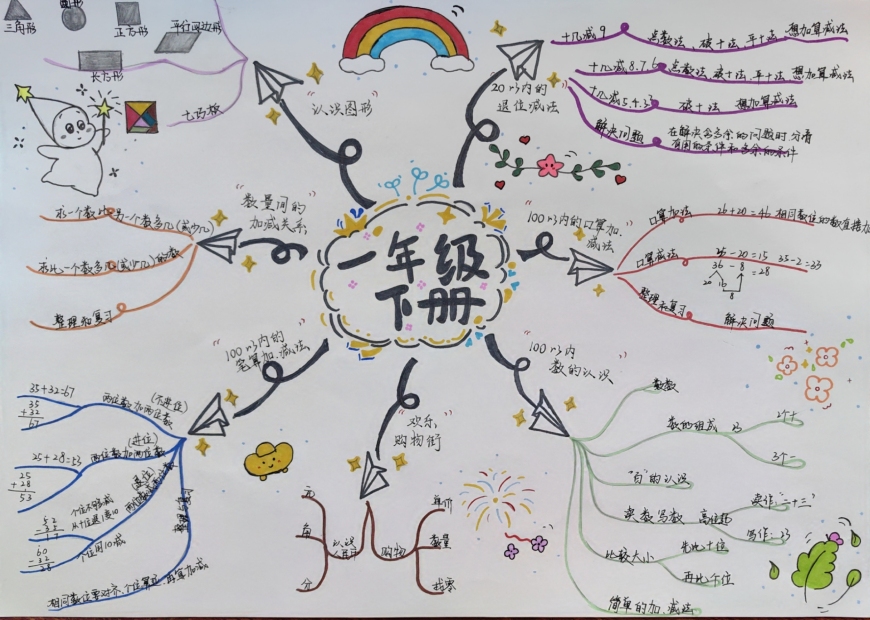 一年级
下册
"认识图形"
三角形
圆形
正方形
平行四边形
长方形
七巧板
20以内的
退位减法
十几减9
点数法、破十法、平十法、想加算减法
十几减8.7.6
点数法、破十法、平十法 想加算减法
十几减5.4.3
破十法 想加算减法
解决问题
在解决含多余的问题时 分清
有用的条件和多余的条件
数量间的
加减关系
求一个数比另一个数多几(或少几)
求比一个数多几(或少几)的数
整理和复习
100以内的口算加、
减法
口算加法
26+20=46 相同数位的数直接加
口算减法
35-20=15 35-2=33
36-8=28
整理和复习
解决问题
100以内的
笔算加、减法
35+32=67
35
+32
67
两位数加两位数
(不进位)
25+28=53
25
+28
53
两位数加两位数
(进位)
个位不够减
从十位退1变10
60
个位用10减
相同数位要对齐,个位算起
欢乐
购物街
认识
人民币
元
角
分
购物
单价
数量
找零
100以内
数的认识
数数
数的组成
23
2个十
3个一
"百"的认识
读数写数
高位起
读作:二十三
写作:23
比较大小
先比十位
再比个位
简单的加、减法